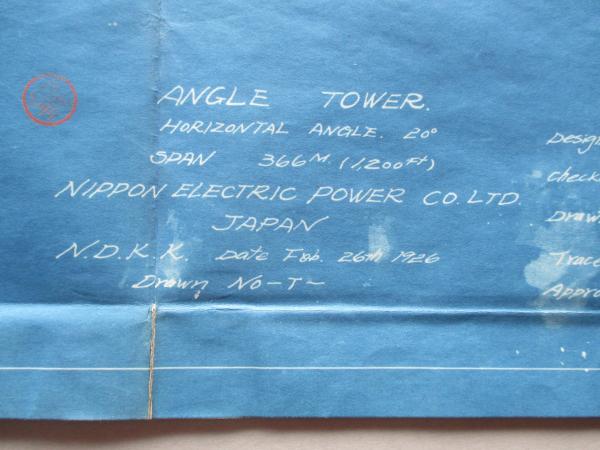 ANGLE TOWER.
HORIZONTAL ANGLE. 20°
SPAN 366M. (1,200Ft)
NIPPON ELECTRIC POWER CO. LTD.
JAPAN
N.D.K.K. Date Feb. 26th 1926
Drawn No-T~
Desig
Check
Drawn
Trace
Appro